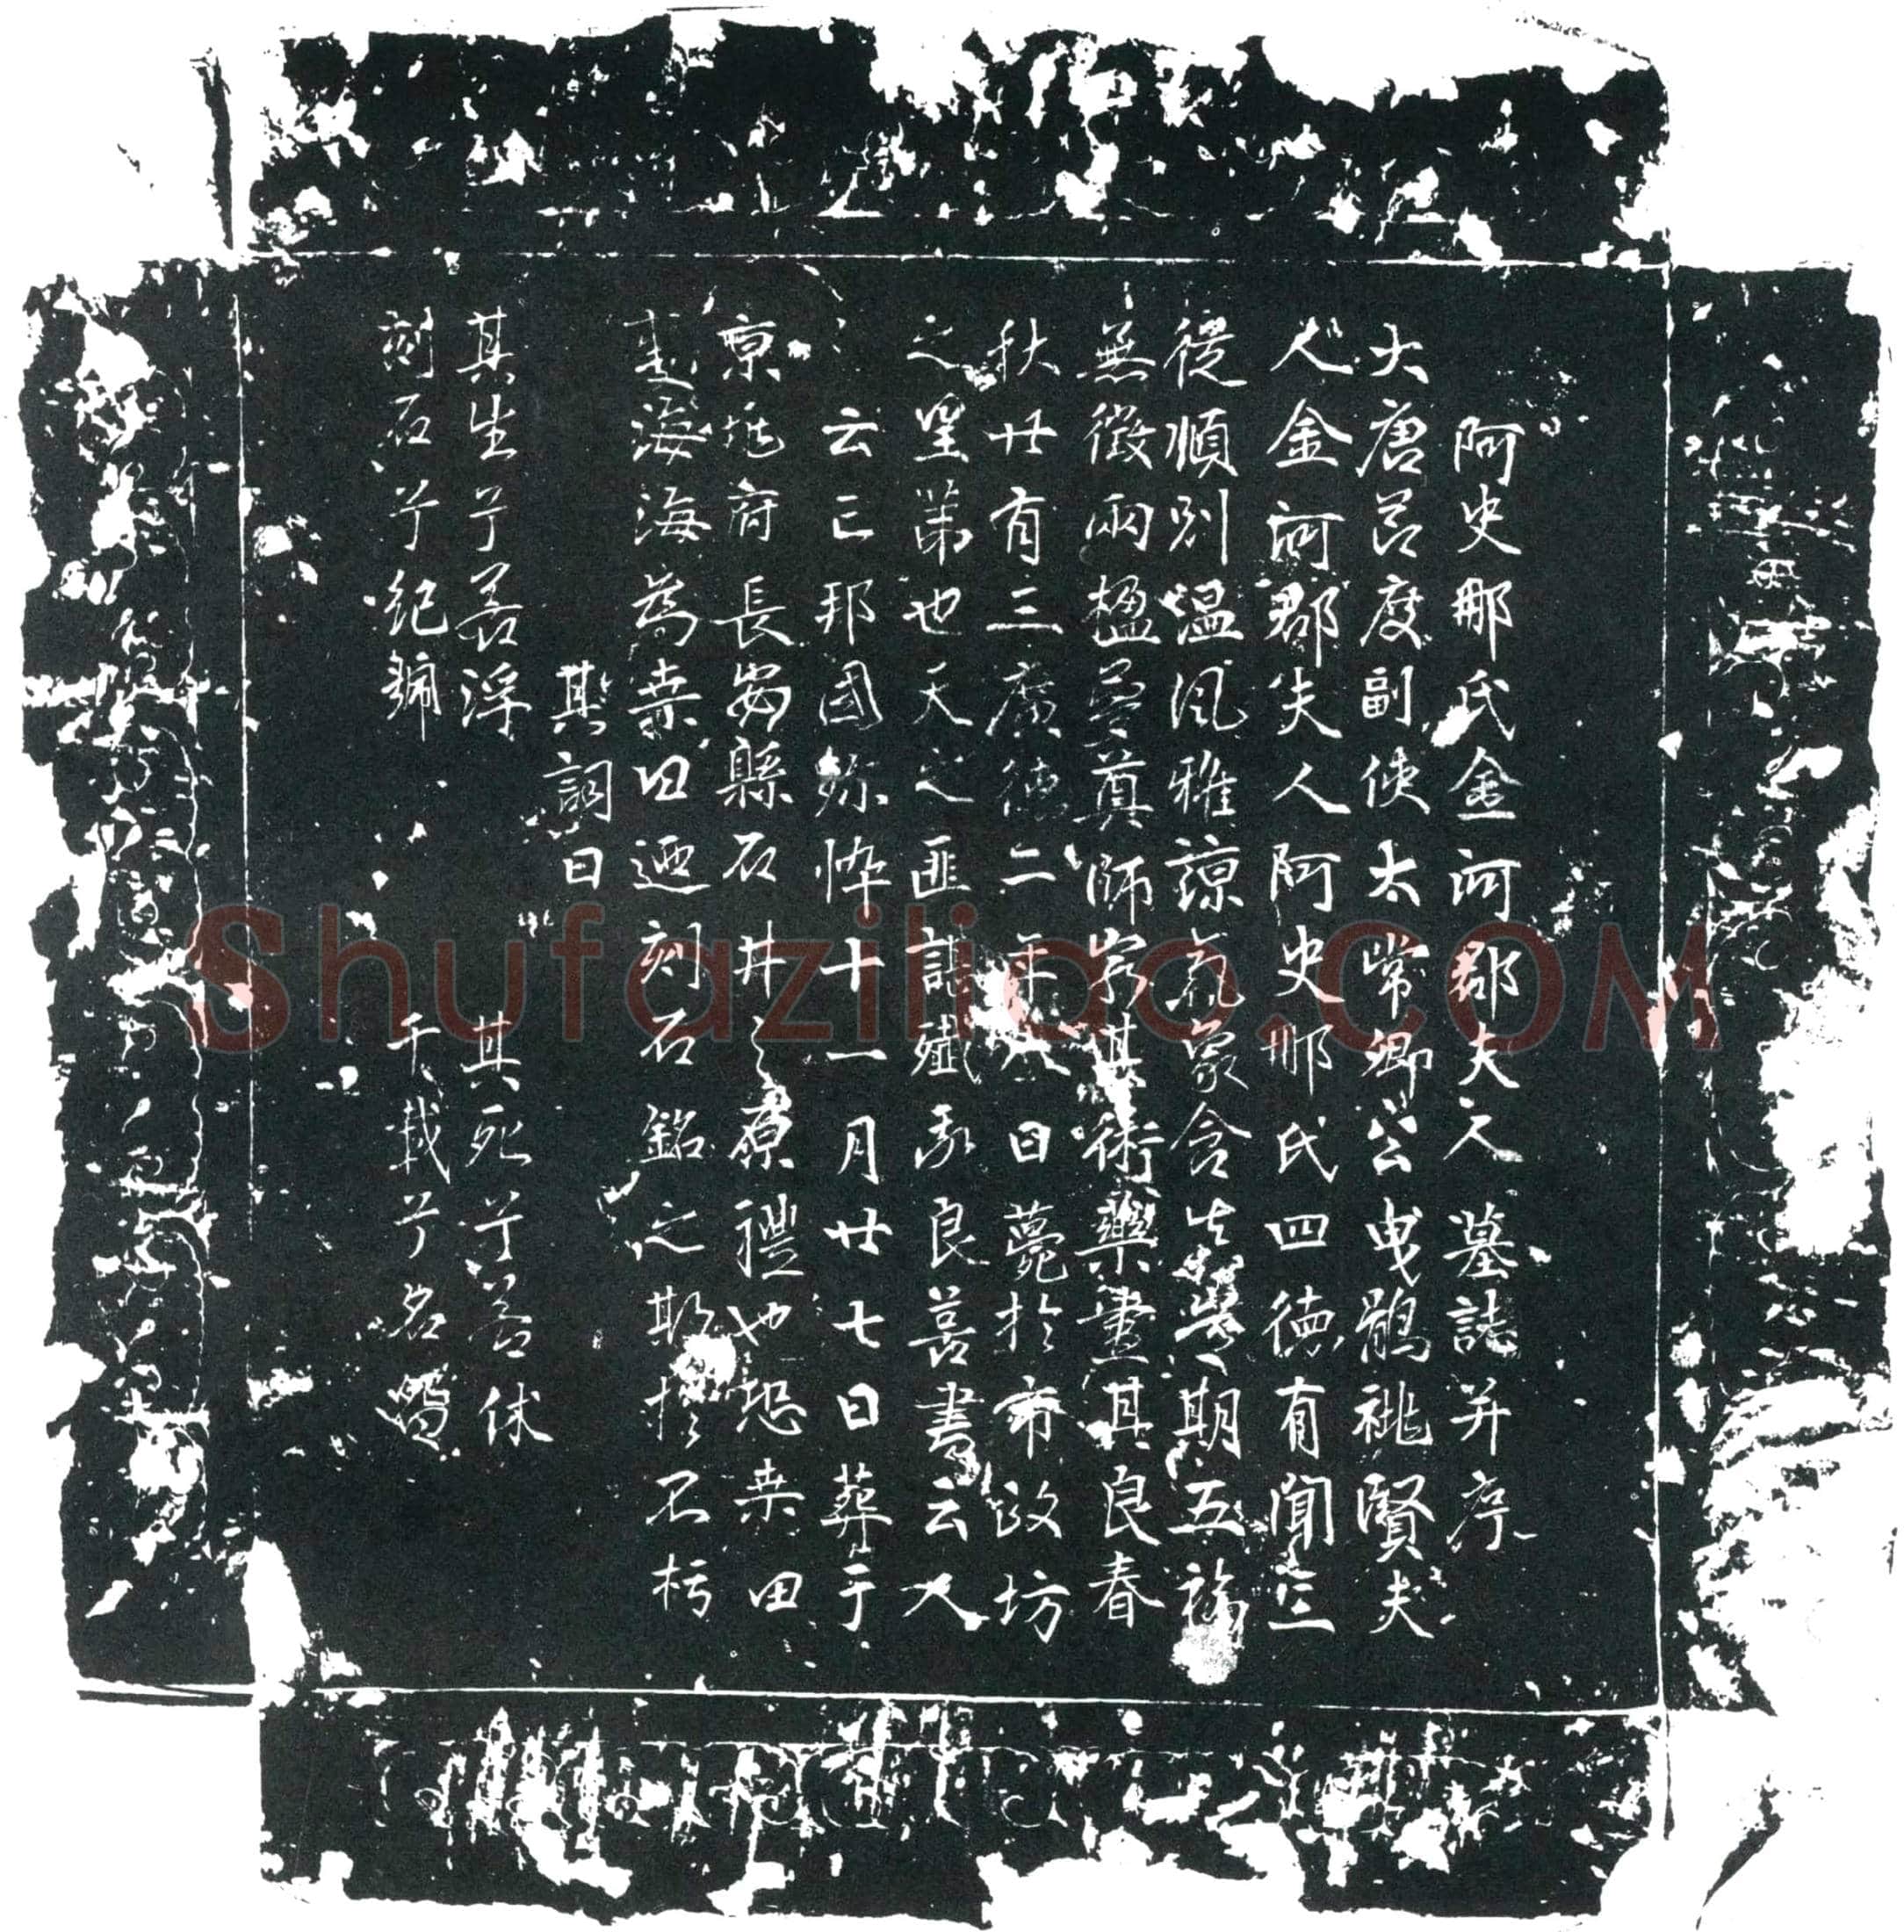 阿史那氏金河郡夫人墓誌并序
大唐節度副使太常卿公曳鶻祧賢夫
人金河郡夫人阿史那氏四德有聞三
從順則温風雅諒氣象含生學期五福
無徵兩楹奠師窮其術藥盡其良春
秋廿有三廣德二年日薨於市政坊
之里第也天之匪諶殲我良善書云人
云亡邦國殄悴十一月廿七日葬于
京兆府長安縣石井之原禮也恐桑田
變海海為桑田迺刻石銘之期於不朽
其詞曰
其生兮若浮 其死兮若休
刻石兮紀號 千載兮名留
Shufaziliao.COM